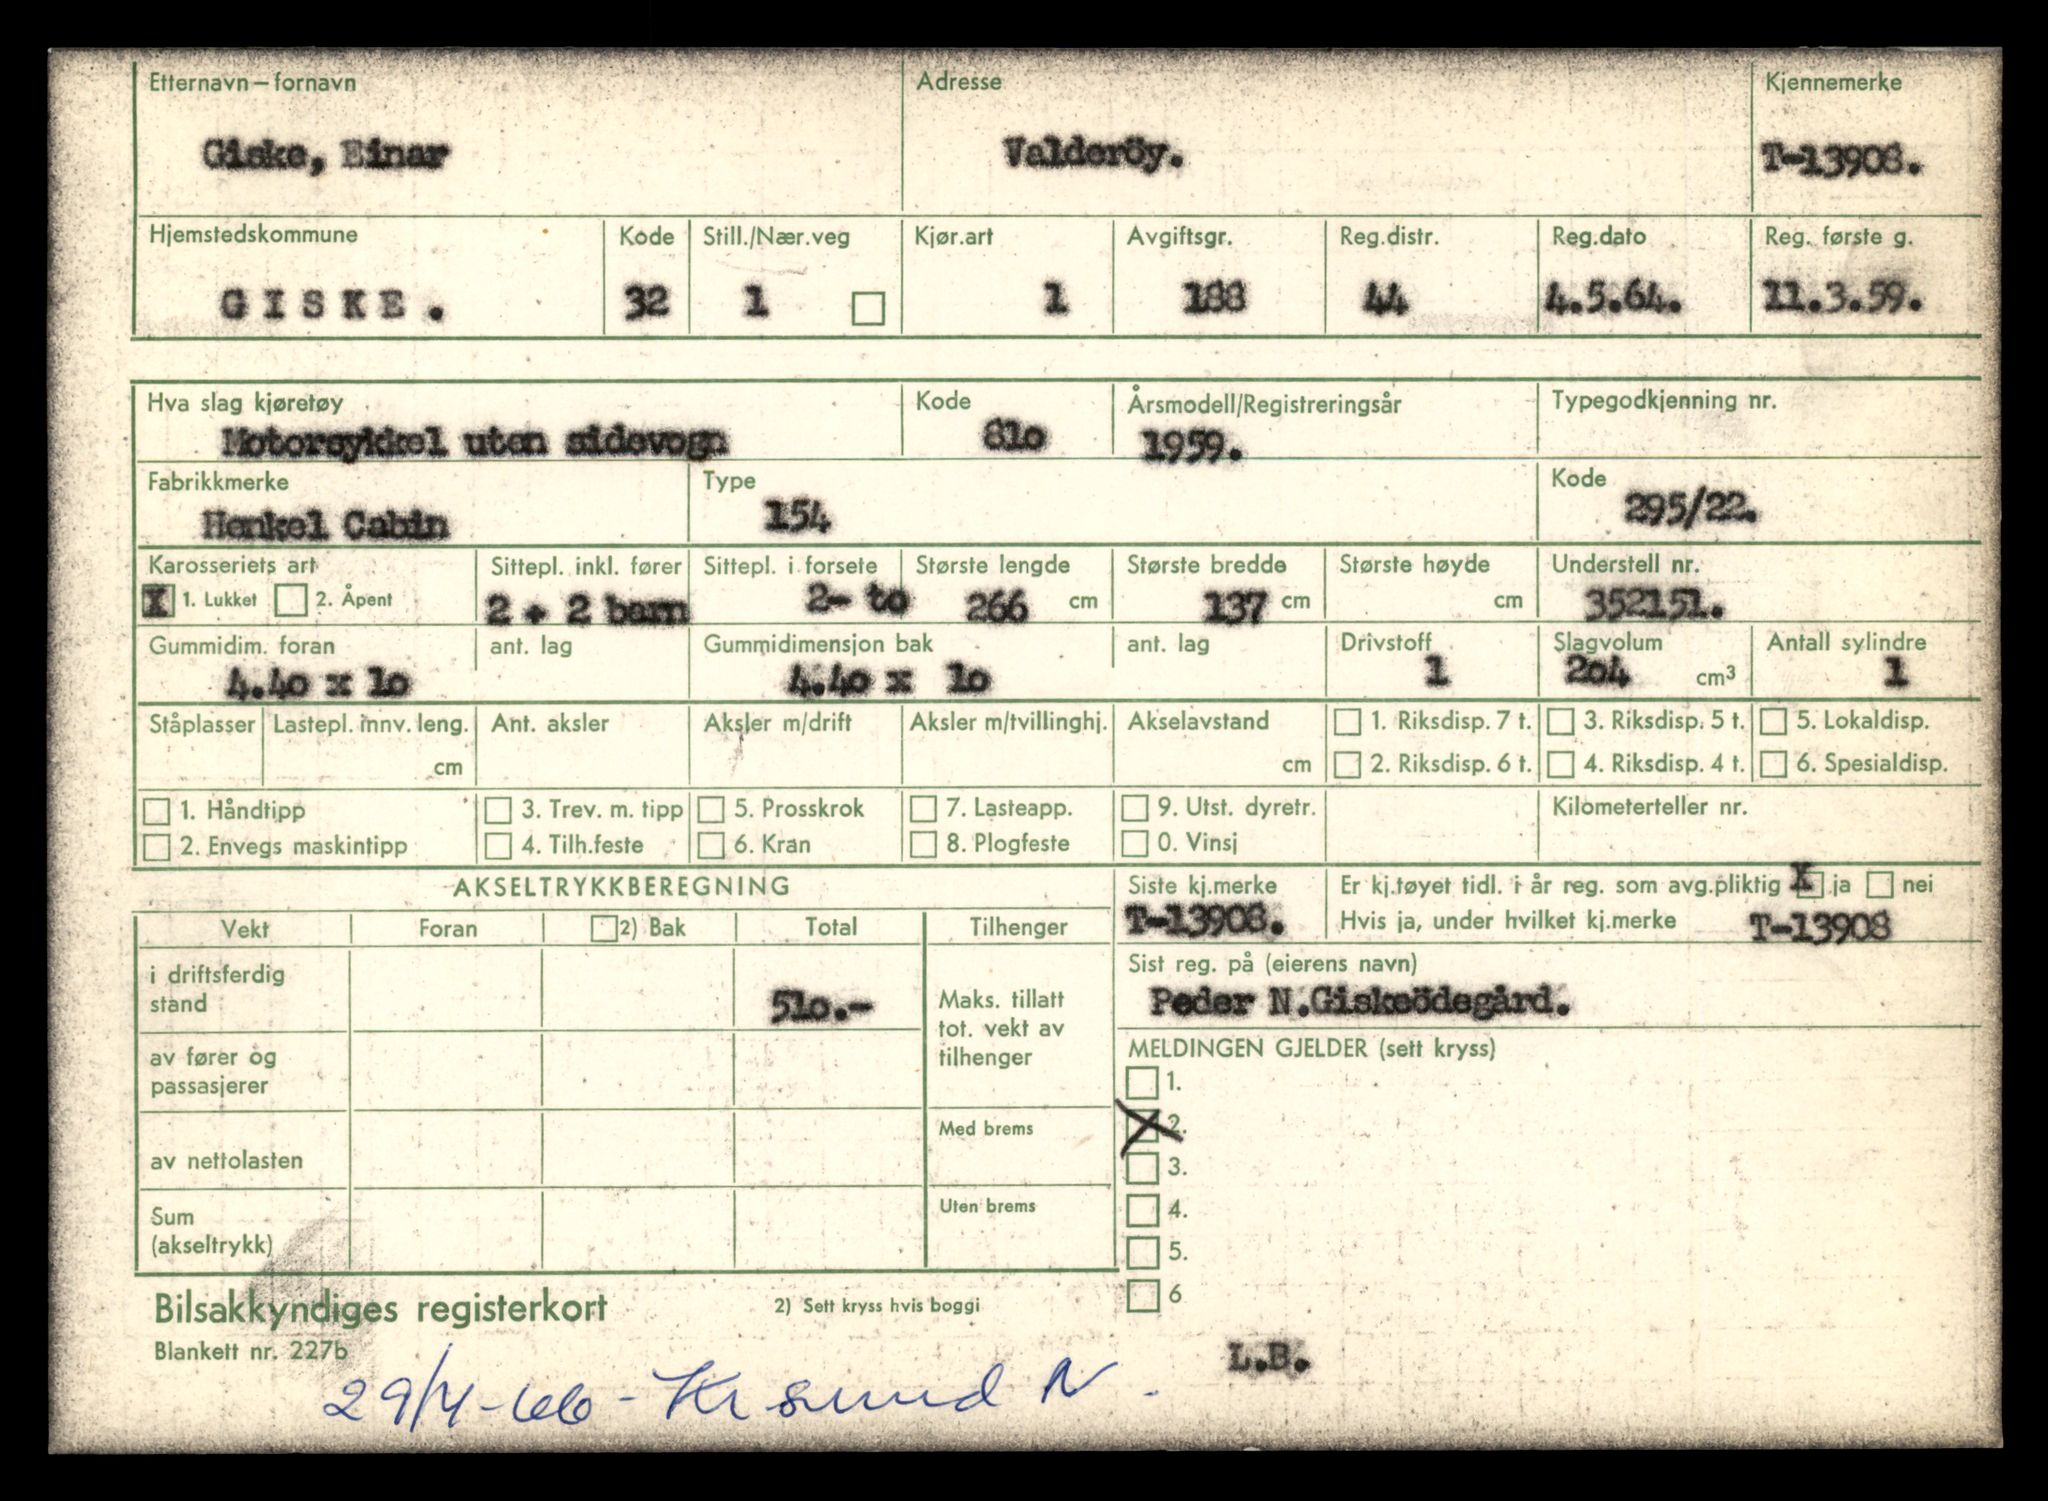 Etternavn – fornavn Adresse Kjennemerke
Giske, Einar Valderöy. T-13908.
Hjemstedskommune Kode Still./Nær.veg Kjør.art Avgiftsgr. Reg.distr. Reg.dato Reg. første g.
GISKE. 32 1 1 188 44 4.5.64. 11.3.59.
Hva slag kjøretøy Kode Årsmodell/Registreringsår Typegodkjenning nr.
Motorsykkel uten sidevogn 81o 1959.
Fabrikkmerke Type Kode
Henkel Cabin 154 295/22.
Karosseriets art Sittepl. inkl. fører Sittepl. i forsete Største lengde Største bredde Største høyde Understell nr.
X 1. Lukket 2. Åpent 2 + 2 barn 2- to 266 cm 137 cm cm 352151.
Gummidim. foran ant. lag Gummidimensjon bak ant. lag Drivstoff Slagvolum Antall sylindre
4.4o x 1o 4.4o x 1o 1 2o4 cm³ 1
Ståplasser Lastepl. innv. leng. Ant. aksler Aksler m/drift Aksler m/tvillinghj. Akselavstand 1. Riksdisp. 7 t. 3. Riksdisp. 5 t. 5. Lokaldisp.
cm cm 2. Riksdisp. 6 t. 4. Riksdisp. 4 t. 6. Spesialdisp.
1. Håndtipp 3. Trev. m. tipp 5. Prosskrok 7. Lasteapp. 9. Utst. dyretr. Kilometerteller nr.
2. Envegs maskintipp 4. Tilh.feste 6. Kran 8. Plogfeste 0. Vinsj
AKSELTRYKKBEREGNING Siste kj.merke Er kj.tøyet tidl. i år reg. som avg.pliktig X ja nei
T-13908. Hvis ja, under hvilket kj.merke T-13908
Vekt Foran 2) Bak Total Tilhenger
i driftsferdig stand 51o.- Maks. tillatt tot. vekt av tilhenger
Sist reg. på (eierens navn)
Peder N.Giskeödegård.
av fører og passasjerer
MELDINGEN GJELDER (sett kryss)
1.
X 2.
av nettolasten Med brems
3.
Sum (akseltrykk) Uten brems
4.
5.
6
Bilsakkyndiges registerkort 2) Sett kryss hvis boggi
Blankett nr. 227b
L.B.
29/4-66 - Kr sund N.